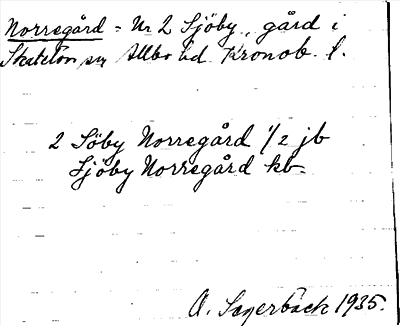 Norregård = Nr 2 Sjöby, gård i
Skatelöv sn Allbo hd Kronob. l.
2 Söby Norregård 1/2 jb
Sjöby Norregård kb
A. Lagerbäck 1935.